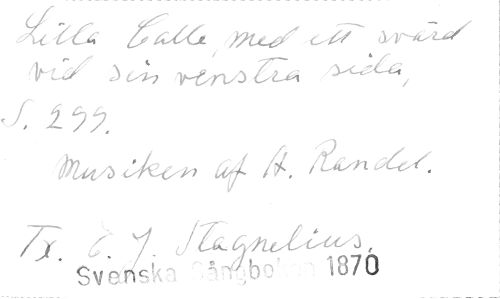 Lilla Calle, med ett svärd
vid sin venstra sida,
S. 299.
Musiken af A. Randel.
Tx. E. J. Stagnelius.
Svenska Sångboken 1870